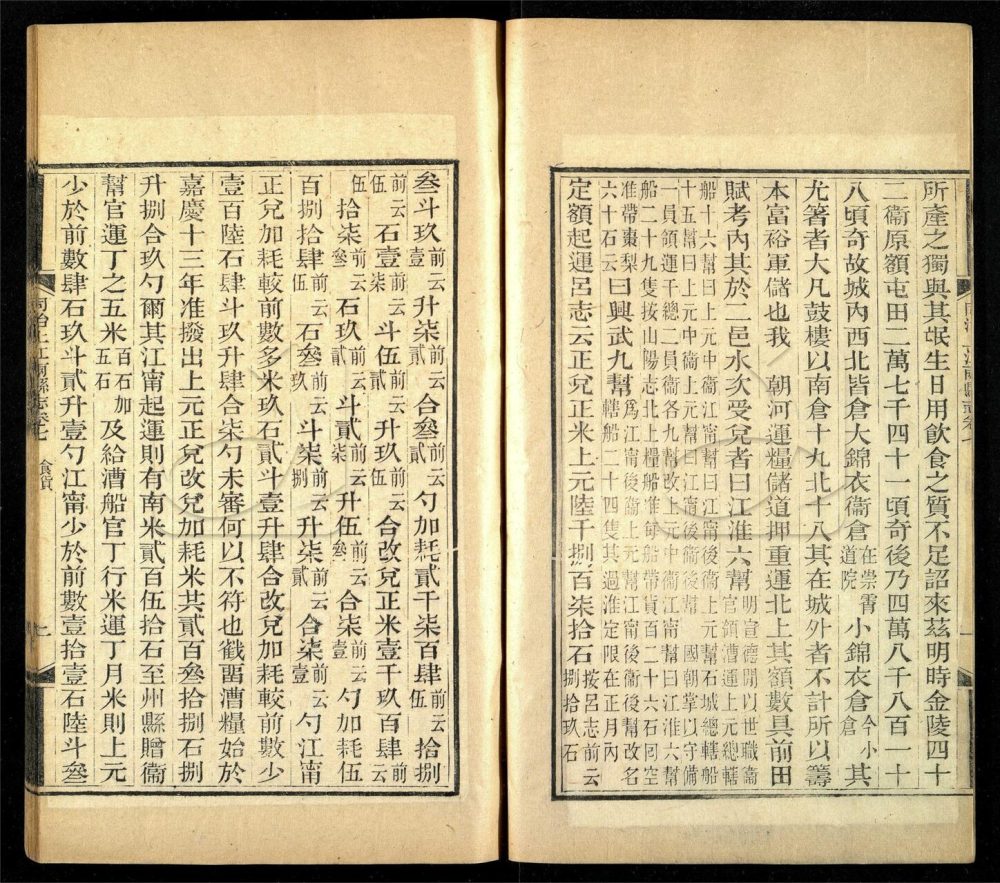 所產之獨與其氓生日用飮食之質不足詔來茲明時金陵四十
二衞原額屯田二萬七千四十一頃奇後乃四萬八千八百一十
八頃奇故城內西北皆倉大錦衣衞倉在崇霄道院小錦衣倉今小倉其
尤著者大凡鼓樓以南倉十九北十八其在城外者不計所以籌
本富裕軍儲也我 朝河運糧儲道押重運北上其額數具前田
賦考內其於二邑水次受兌者曰江淮六幫明宣德閒以世職衞官領漕運上元總轄
船十六幫曰上元中衞江甯幫曰江甯後衞上元幫石城總轄船
十五幫曰上元中衞上元幫曰江甯後衞後幫 國朝掌以守備
一員領運千總二員衞各九幫改上元中衞江甯幫曰江淮六幫
船二十九隻按山陽志北上糧船惟每船帶貨百二十六石囘空
准帶棗梨六十石云曰興武九幫爲江甯後衞上元幫江甯後衞後幫改名轄船二十四隻其過淮定限在正月內
定額起運呂志云正兌正米上元陸千捌百柒拾石按呂志前云捌拾玖石
叁斗玖前云壹升柒前云叁合叁前云貳勺加耗貳千柒百肆前云伍拾捌
前云伍石壹前云柒斗伍前云貳升玖前云伍合改兌正米壹千玖百肆前云
伍拾柒前云叁石玖前云貳斗貳前云柒升伍前云叁合柒前云壹勺加耗伍
百捌拾肆前云伍石叁前云玖斗柒前云捌升柒前云貳合柒前云壹勺江甯
正兌加耗較前數多米玖石貳斗壹升肆合改兌加耗較前數少
壹百陸石肆斗玖升肆合柒勺未審何以不符也戳畱漕糧始於
嘉慶十三年准撥出上元正兌改兌加耗米共貳百叁拾捌石捌
升捌合玖勺爾其江甯起運則有南米貳百伍拾石至州縣贈衞
幫官運丁之五米百石加五石及給漕船官丁行米運丁月米則上元
少於前數肆石玖斗貳升壹勺江甯少於前數壹拾壹石陸斗叁
同治上江兩縣志卷七 食貨